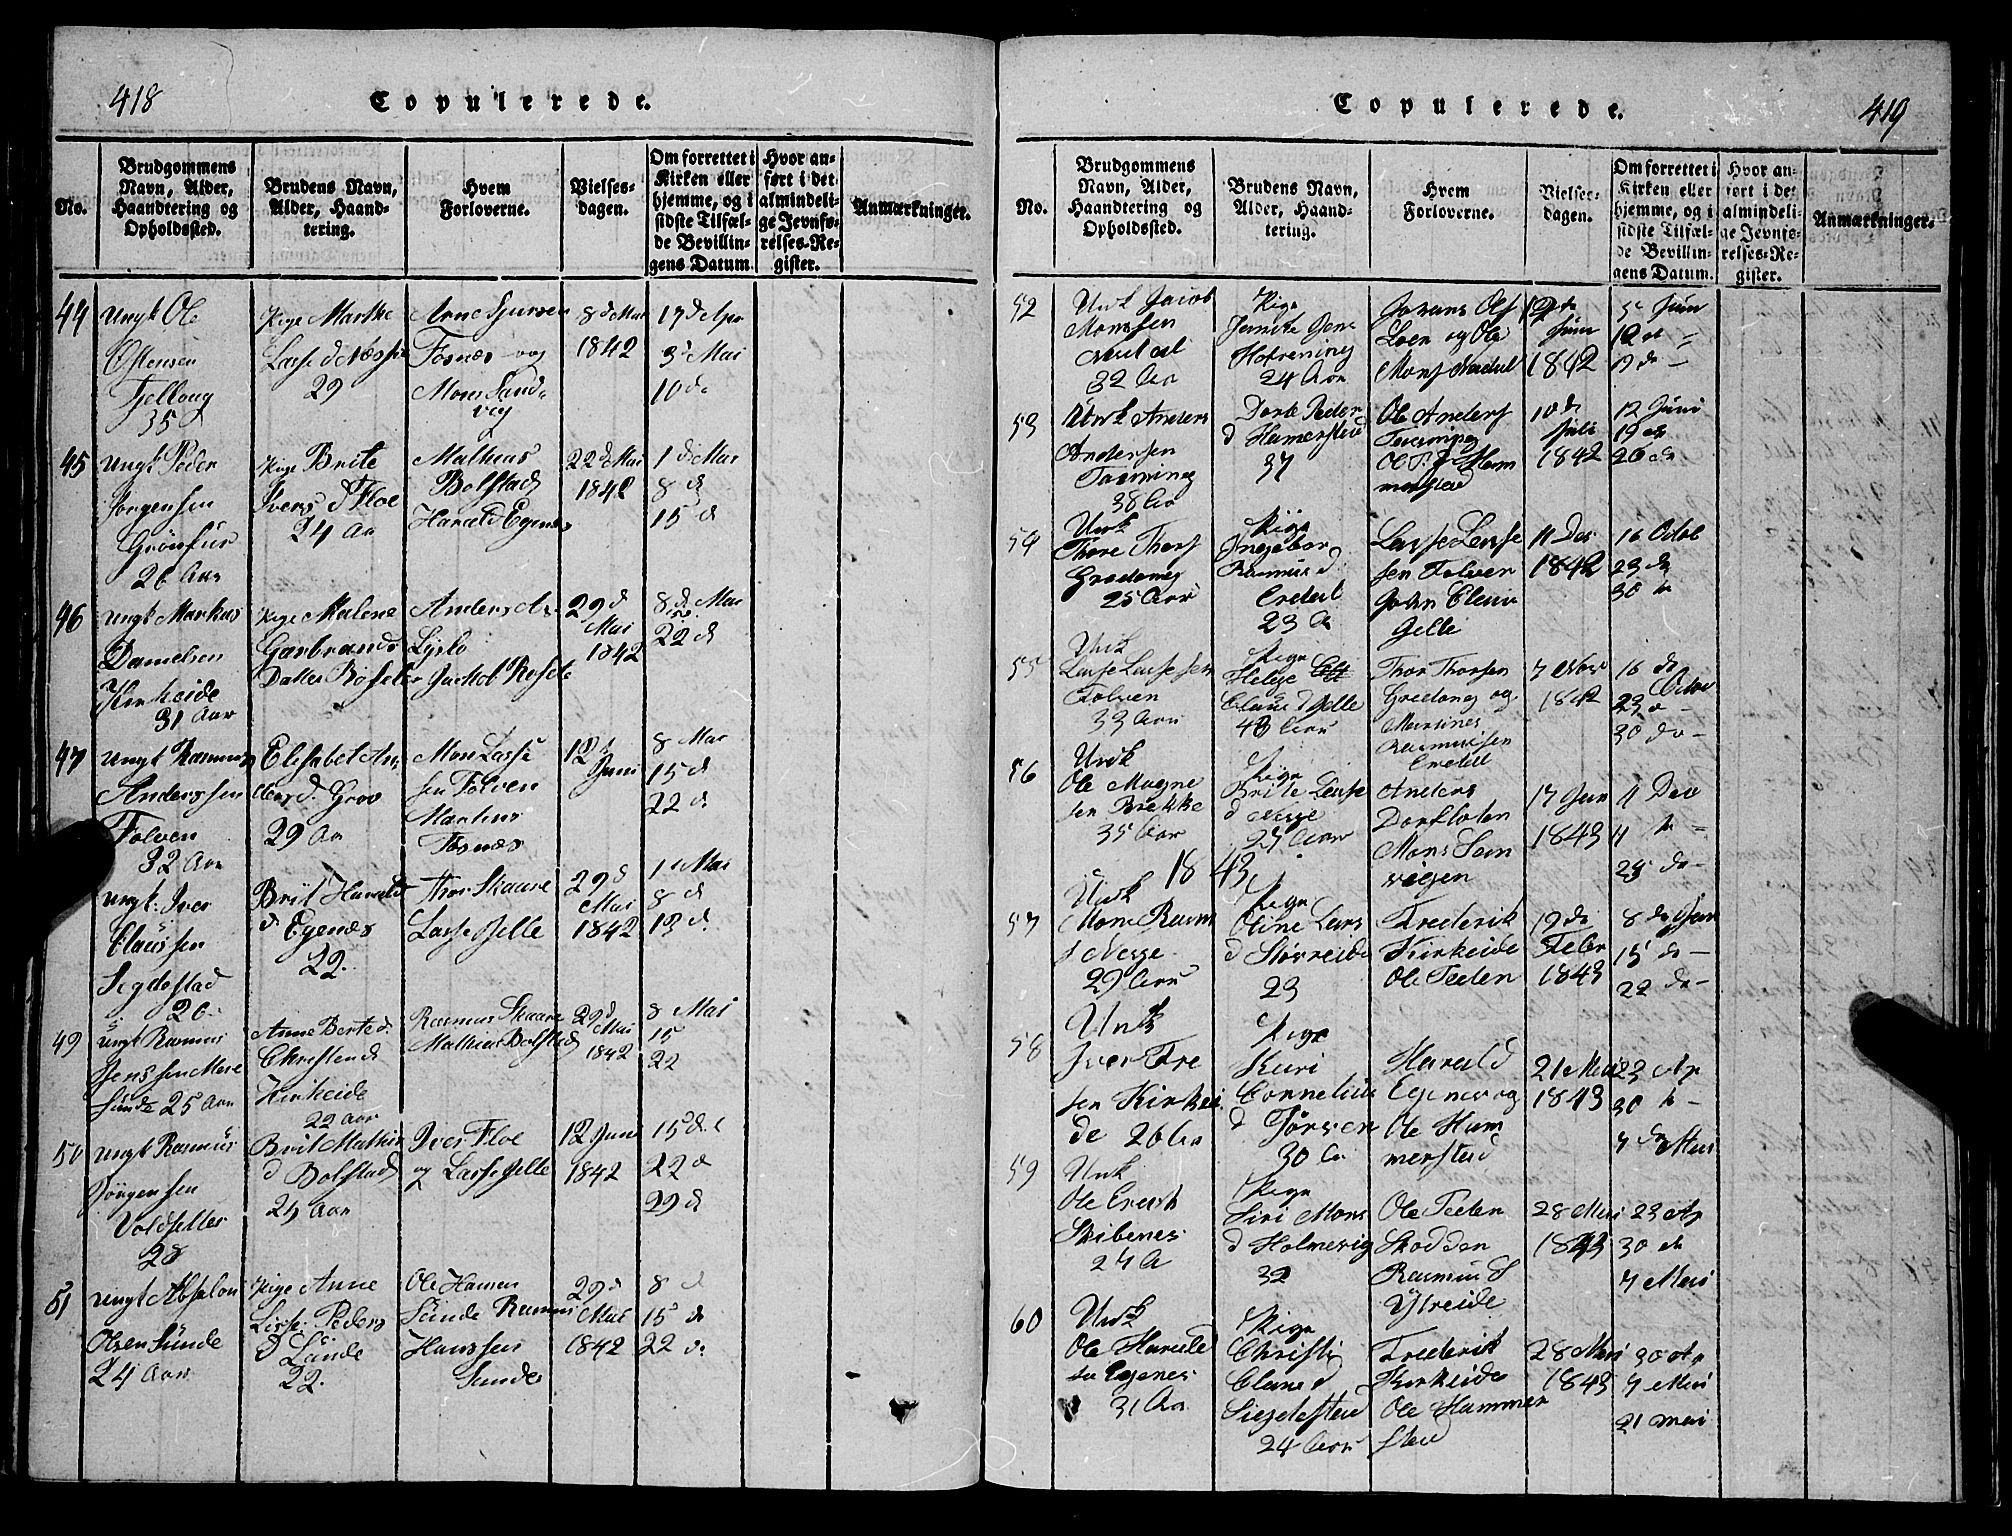 418
Copulerede.
No.
Brudgommens
Navn, Alder,
Haandtering og
Opholdssted.
Brudens Navn,
Alder, Haand-
tering.
Hvem
Forloverne.
Vielses-
dagen.
Om forrettet i
Kirken eller
hjemme, og i
sidste Tilfæl-
de Bevillin-
gens Datum
Hvor an-
ført i det
almindeli-
ge Jevnfø-
relses-Re-
gister.
Anmærkninger.
44
Ungk Ole
Ostensen
Tjellaug
35
Pige Marthe
Lasse d Næsse
29
Arne Sjursen
Fosnæs og
Mons Sand-
vig
8 d Mai
1842
17 d Apr
3 d Mai
10 d
45
Ungk Peder
Jørgensen
Grønfur
26 Aar
Pige Brite
Ivers d Floe
24 Aar
Mathias
Bolstad
Harald Egenæs
22 d Mai
1842
1 d Mai
8 d
15 d
46
Ungk Markus
Danielsen
Kirkeide
31 Aar
Pige Malene
Garbrands
Datter Røset
Anders
Lyslo
Jackob Røset
29 d
Mai
1842
8 d Mai
22 d
47
Ungk Rasmus
Anderssen
Folven
32 Aar
Elisabet An-
ders d. Grov
29 Aar
Mons Lasse
sen Folven
Martinus
Fosnæs
12
Juni
8 Mai
15 d
22 d
Ungk. Iver
Claussen
Segdestad
26
Brit Harald
d Egenæs
22.
Thor Skaare
Lasse Gjelle
29 d
Mai
1842
1 Mai
8 d
13 d.
49
Ungk Rasmus
Jenssen Mere
Sunde 25 Aar
Anne Berte d.
Christen d
Kirkeide
22 Aar
Rasmus Skaare
Mathias Bolstad
29 d
Mai
1842
8 Mai
15
22
50
Ungk Rasmus
Jørgensen
Voldsetter
28
Brit Mathias
d Bolstad
24 Aar
Iver Floe
og Lasse Gjelle
12 Juni
1842
15 d
22 d
29 d
51
Ungk Absalon
Olsen Sunde
24 Aar
Pige Anne
Lisse Peders
d Sunde
22.
Ole Hansen
Sunde Rasmus
Hanssen
Sunde
29 d
Mai
1842
8 d
15 d
22 d.
Copulerede.
419
No.
Brudgommens
Navn, Alder,
Haandtering og
Opholdssted.
Brudens Navn,
Alder, Haand-
tering.
Hvem
Forloverne.
Vielses-
dagen.
Om forrettet i
Kirken eller
hjemme, og i
sidste Tilfæl-
de Bevillin-
gens Datum.
Hvor an-
ført i det
almindeli-
ge Jevnfø-
relses-Re-
gister.
Anmærkninger.
52
Unk Jacob
Monssen
32 Aar
Pige
24 Aar
Loen og Ole
Mons
Juni
1842
5 Juni
12 d
19 d
53
Unk Anders
Andersen
38 Aar
Dorte Peder
d Hamerstad
37
Ole Anders
Ole P. Ham
merstad
10 d
Juli
1842
12 Juni
19 d
26 d
54
Unk
Thore Thors
Grodaas
25 Aar
Pige
Ingebor
Rasmus d
23 A
Lasse Lasse
sen Folven
John Claus
Gjelle
11 Des
1842
16 Octob
23 d
30 d
55
Unk
Lasse Lassesen
Folven
33 Aar
Pige
Helge
Claus d Gjelle
43 Aar
Thor Thorsen
Grodaas og
Rasmusen
7
1842
16 d
23 d
30 do
56
Unk
Ole Magne
sen Brekke
35 Aar
Pige
Brite Lasse
d
27 Aar
Anders
Dorfloten
Mons San
vigen
17 Jan
1843
11 Des
do
1843
57
Unk
Mons Rasm
29 Aar
Pige
Oline Lars
d Storreide
23
Frederik
Kirkeide
Ole Peder
19 d
Febr
1843
8 d Jan
15 do
22 do
58
Unk
Iver Iver
sen Kirkei
de 26 Aar
Pige
Kari
Cornelius
d
30 A
Harald
Egenes og
Ole Ham
merstad
21 Mai
1843
23 Ap
30
7 d Mai
59
Unk
Ole
Skibenes
24 A
Pige
Siri Mons
d Holmevig
32
Ole Peder
Skodden
Rasmus
Ytreide
28 Mai
1843
23 Ap
30 d
7 Mai
60
Unk
Ole Harald
sen Egenes
31 Aar
Pige
Christi
Claus d
Siegdestad
24 Aar
Frederik
Kirkeide
Ole Hammer
stad
28 Mai
1843
30 Ap
7 Mai
21 Mai